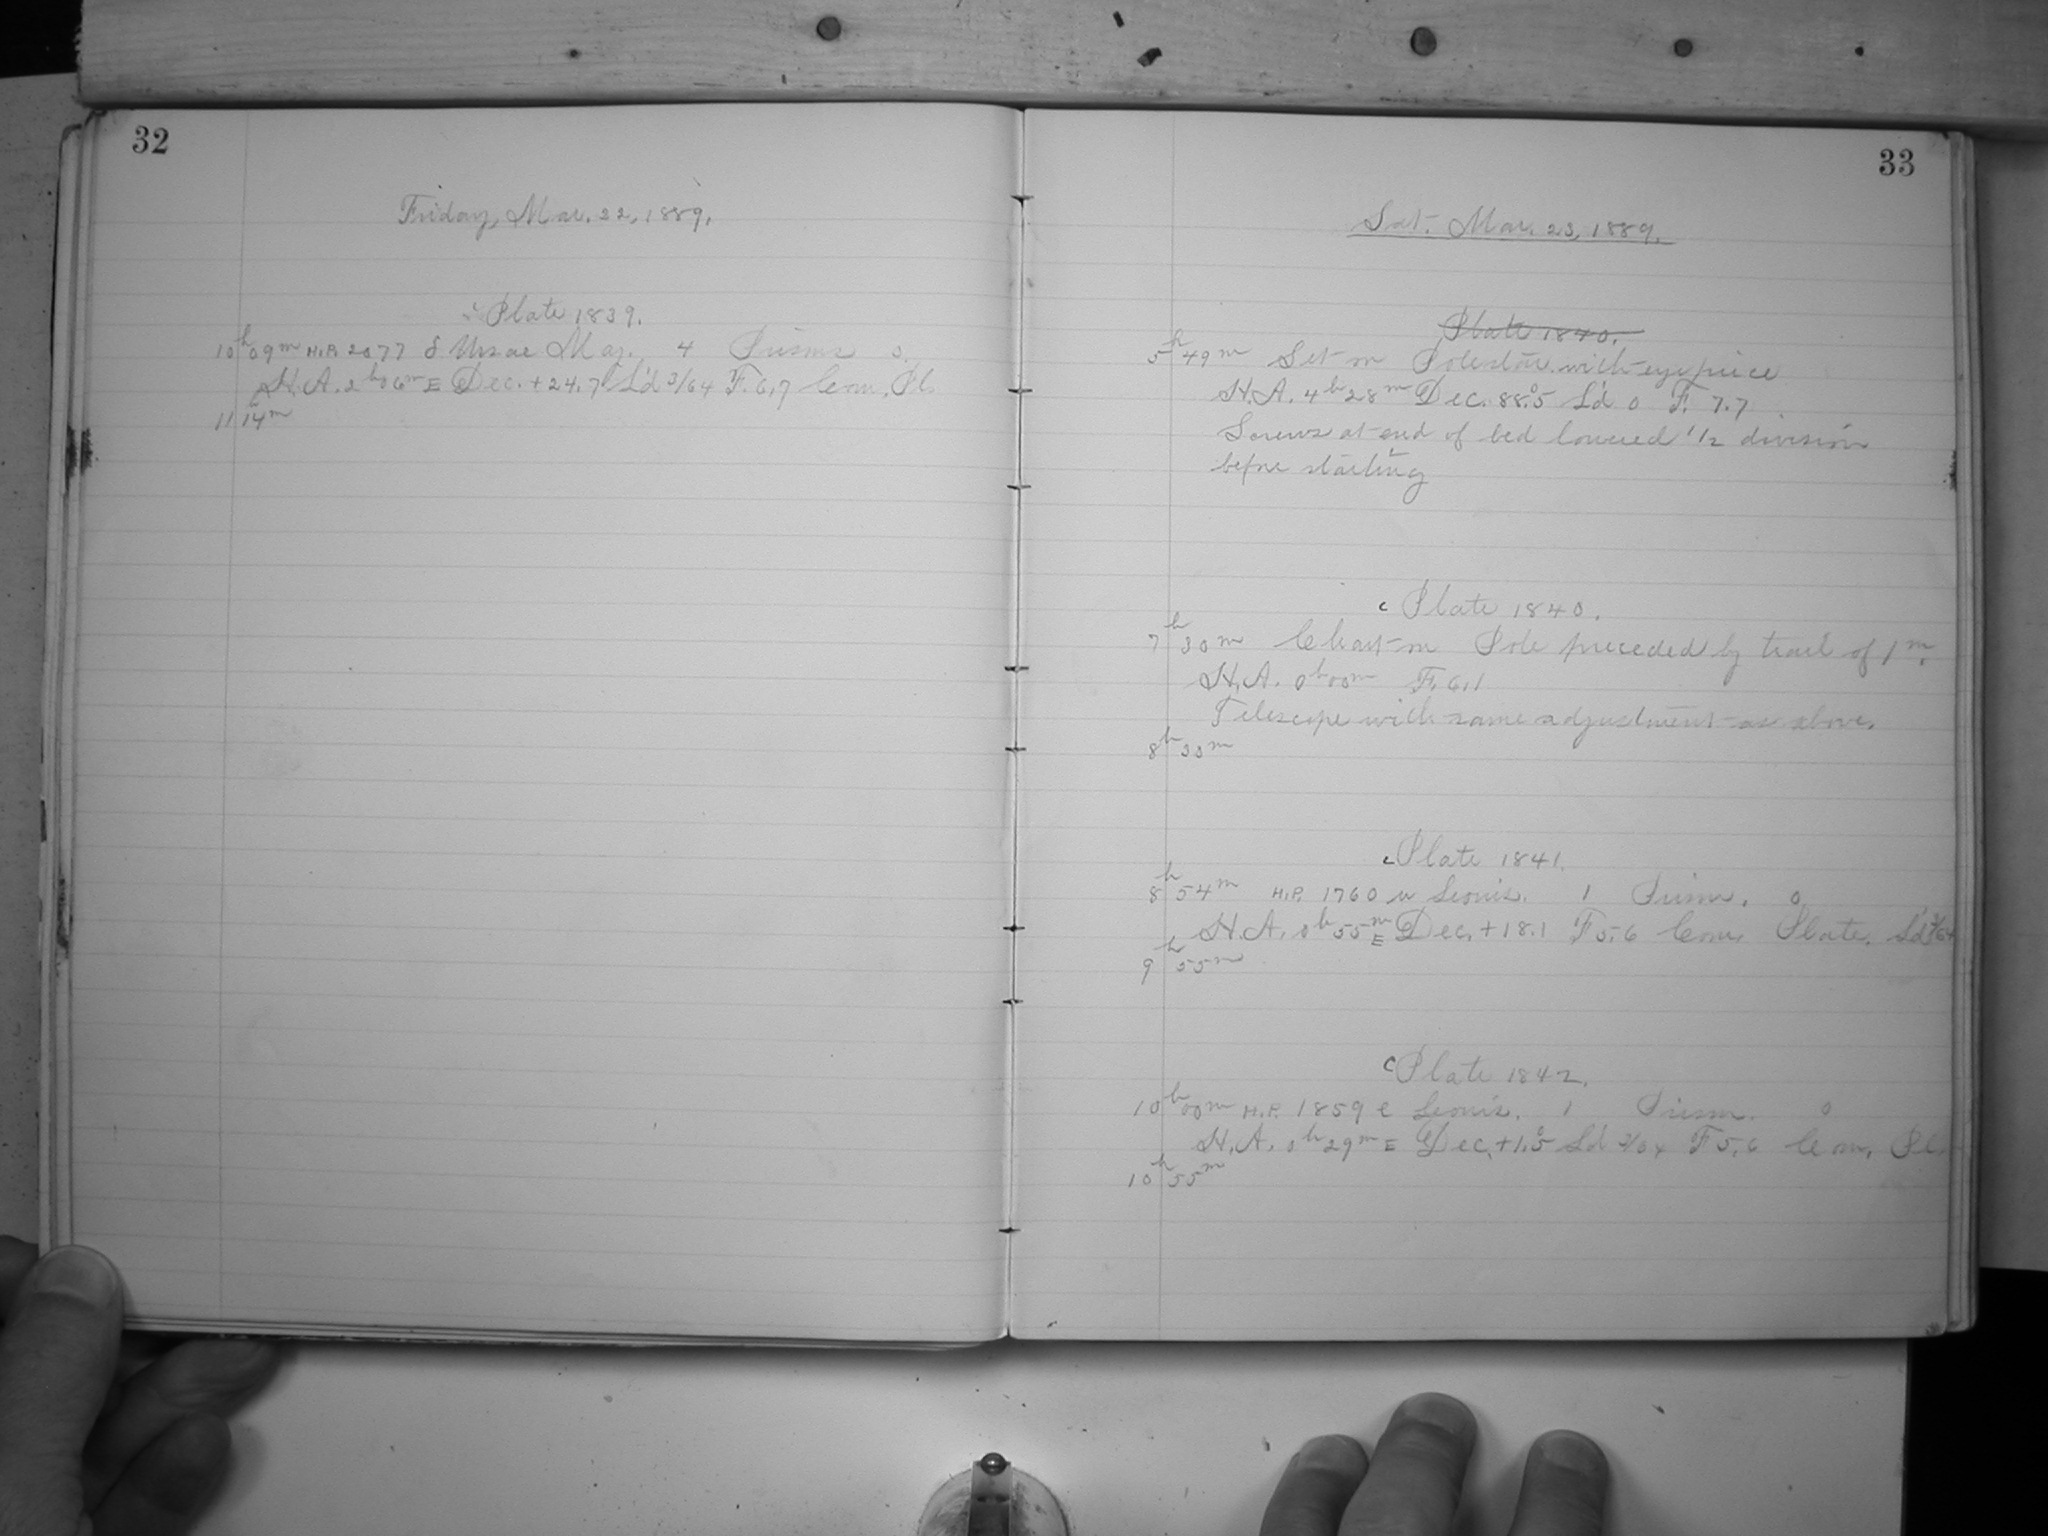 32
Friday, Mar. 22, 1889.
c Plate 1839.
10h 09m H.P. 2077 δ Ursae Maj. 4 Prisms 0.
H.A. 2h 06m E Dec. +24.7 L'd 3/64 F. 6.7 Com. Pl.
11h 14m
33
Sat. Mar. 23, 1889.
Plate 1840.
5h 49m Set on Polestar with eyepiece
H.A. 4h 28m Dec. 88.5 L'd 0 F. 7.7
Screws at end of bed lowered 1/2 division
before starting
c Plate 1840.
7h 30m Chart on Pole preceded by trail of 1m.
H.A. 0h 00m F. 6.1
Telescope with same adjustment as above.
8h 30m
c Plate 1841.
8h 54m H.P. 1760 Leonis. 1 Prism. 0
H.A. 0h 55m E Dec. +18.1 F 5.6 Com. Plate. L'd
9h 55m
c Plate 1842.
10h 00m H.P. 1859 e Leonis. 1 Prism. 0
H.A. 0h 29m E Dec. +1.5 L'd 3/64 F 5.6 Com. Pl.
10h 55m